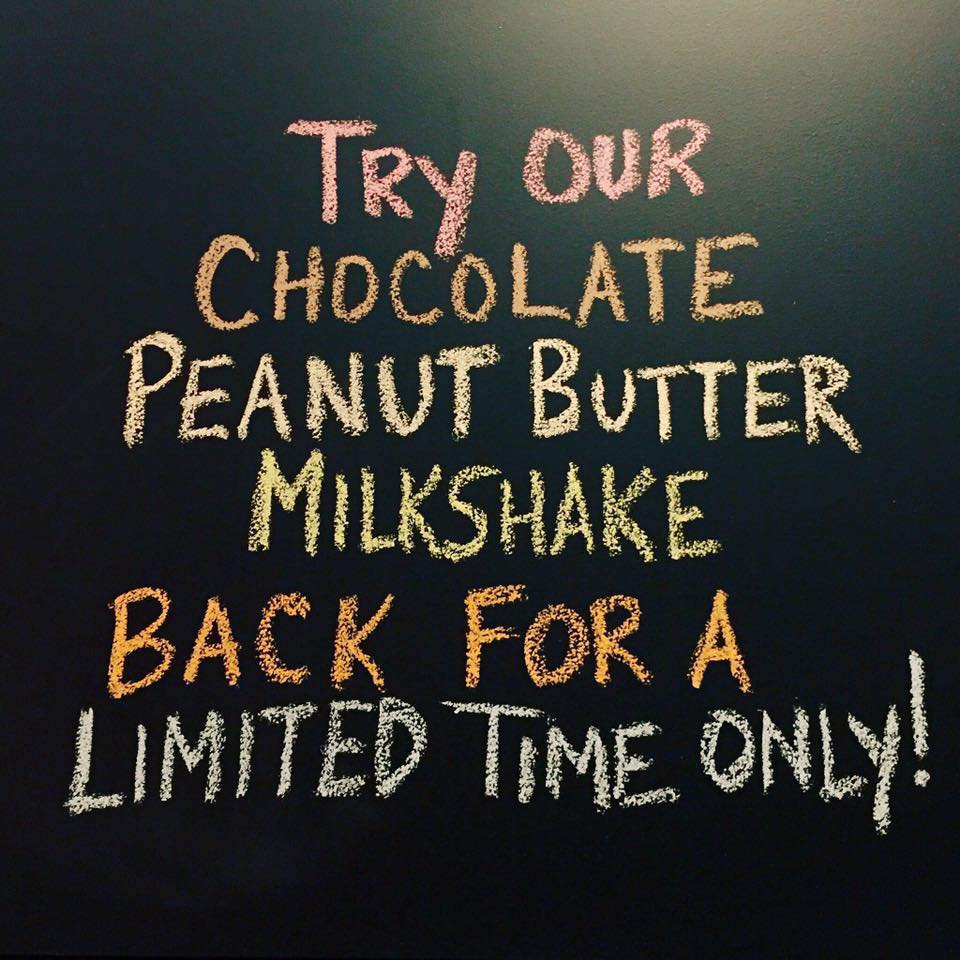 TRY OUR
CHOCOLATE
PEANUT BUTTER
MILKSHAKE
BACK FOR A
LIMITED TIME ONLY!